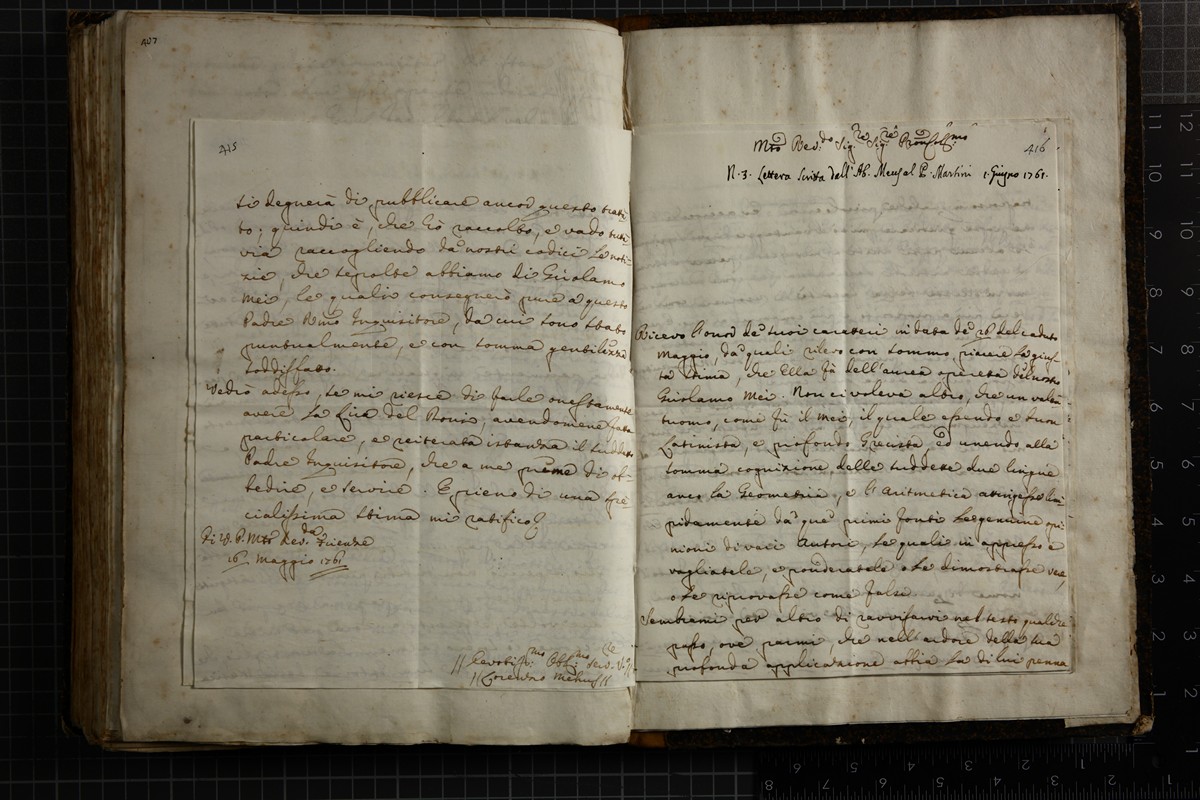 407
415
si degnerà di pubblicare ancor questo trat-
to; quindi è, che hò raccolto, e vado tut-
via raccogliendo da nostri codici le noti-
zie, che sepolte abbiamo di Girolamo
Mei, le quali consegnerò pure a questo
Padre Rmo Inquisitore, da cui sono stato
puntualmente, e con somma gentilezza
soddisfatto.
Vedrò adesso, se mi riesce di farle onestamente
avere La Lira del Doni, avendomene fatta
particolare, e reiterata istanza il suddetto
Padre Inquisitore, che a me preme di ob-
bedire, e servire. E pieno di una spe-
cialissima stima mi ratifico
Di V. P. Mto Revda Firenze
16. Maggio 1761.
// Devotismo Obbmo Serv. Ve //
// Lorenzo Mehus //
416
Mto Revdo Sigre Sigre Pron Colmo
N. 3. Lettera scritta dall' Ab. Meus al P. Martini 1. Giugno 1761.
Ricevo l'onor de suoi caratteri in data de 28 del caduto
Maggio, da quali rilevo con sommo piacere la gius-
ta stima, che Ella fà dell'aurea operetta del nostro
Girolamo Mei. Non ci voleva altro, che un valen-
tuomo, come fù il Mei, il quale essendo e buon
Latinista, e profondo Grecista, ed unendo alla
somma cognizione delle suddette due lingue
anco la Geometria, e l'Aritmetica attingesse lim-
pidamente da que' primi fonti le genuine opi-
nioni di varj Autori, le quali in appresso e
vagliatele, e ponderatele o le dimostrasse vere,
o le riprovasse come false.
Sembrami per altro di ravvisarvi nel testo qualche
passo, ove parmi, che nell'ardore della sua
profonda applicazione abbia la di lui penna